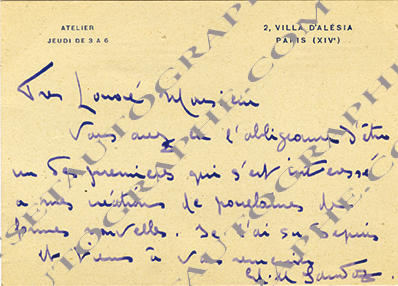 ATELIER
JEUDI DE 3 A 6
2, VILLA D'ALÉSIA
PARIS (XIVᵉ)
Très honoré Monsieur
Vous avez eu l'obligeance d'être
un des premiers qui s'est intéressé
a mes créations de porcelaines des
formes nouvelles. Je l'ai su depuis
et tiens à vous remercier
Ed. M Sandoz